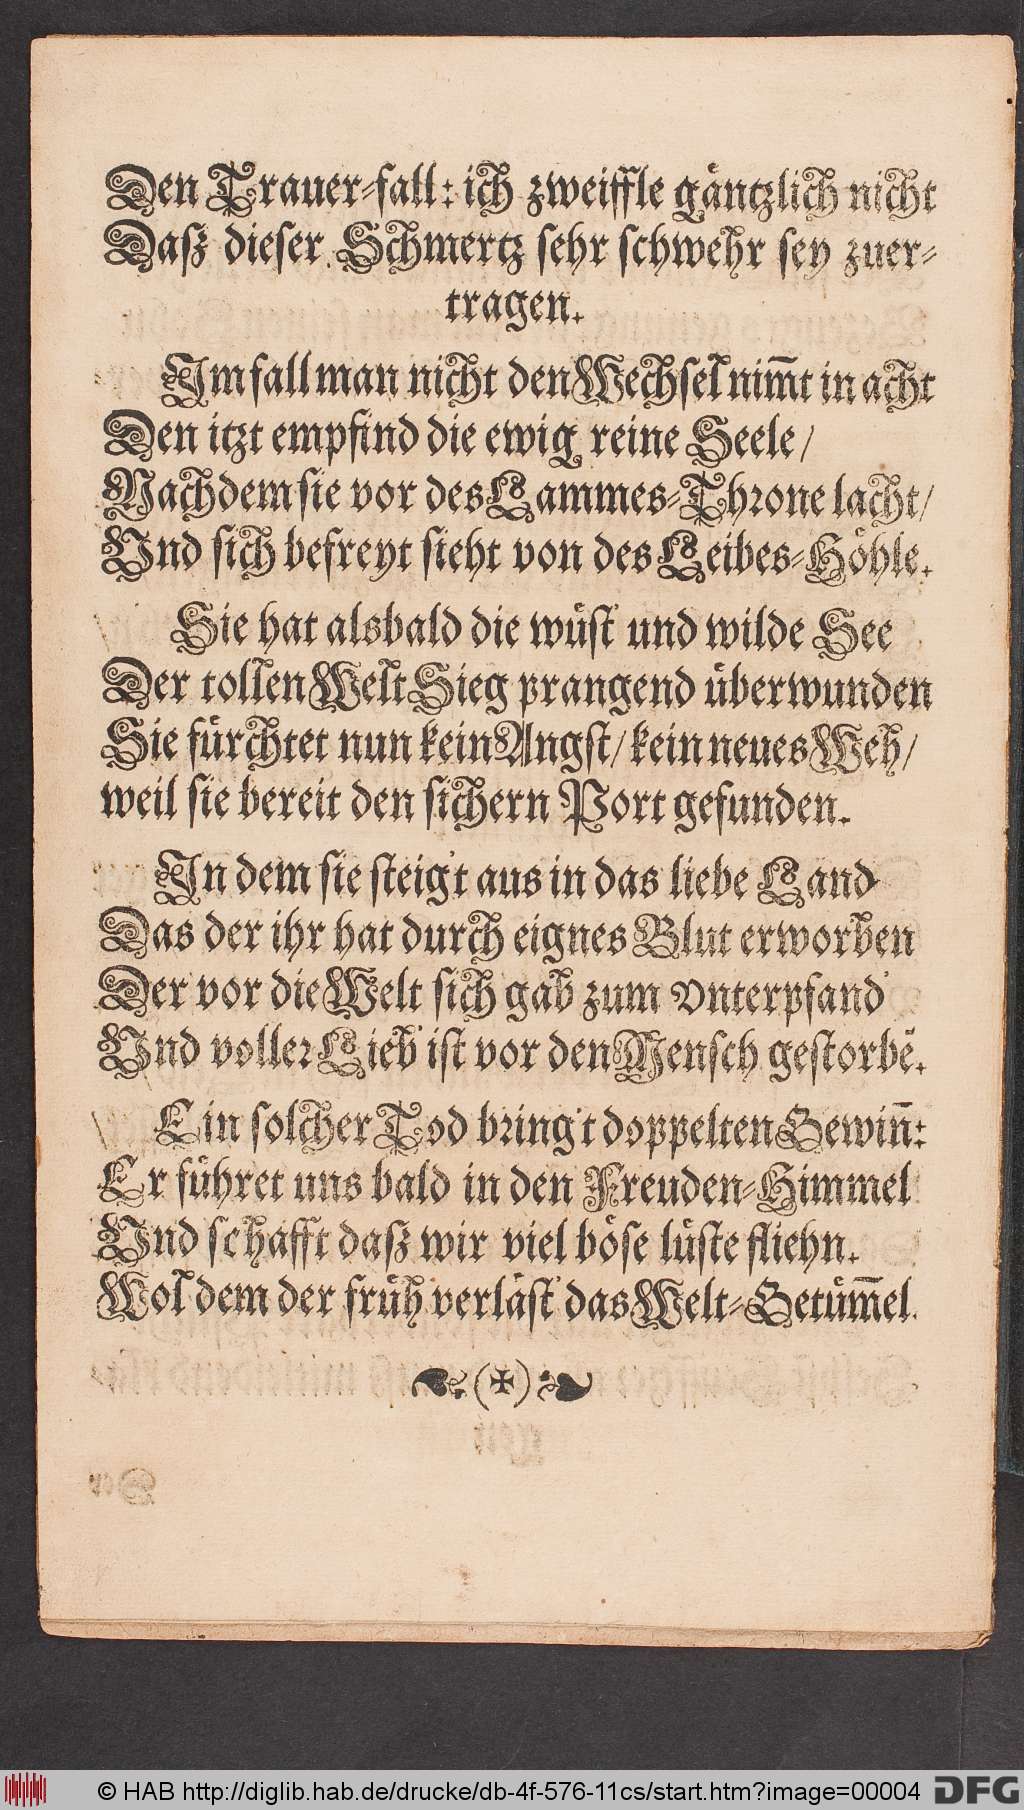 Den Trauer-fall: ich zweiffle gäntzlich nicht
Daß dieser Schmertz sehr schwehr sey zuer-
tragen.
Im fall man nicht den Wechsel nim̃t in acht
Den itzt empfind die ewig reine Seele/
Nachdem sie vor des Lammes-Throne lacht/
Und sich befreyt sieht von des Leibes-Höhle.
Sie hat alsbald die wüst' und wilde See
Der tollen Welt Sieg prangend überwunden
Sie fürchtet nun kein Angst/ kein neues Weh/
weil sie bereit den sichern Port gefunden.
In dem sie steig't aus in das liebe Land
Das der ihr hat durch eignes Blut erworben
Der vor die Welt sich gab zum vnterpfand'
Und voller Lieb' ist vor den Mensch gestorbẽ.
Ein solcher Tod bring't doppelten Gewiñ:
Er führet uns bald in den Freuden-Himmel
Und schafft daß wir viel böse lüste fliehn.
Wol dem der früh verläst' das Welt-Getüm̃el.
(✠)
© HAB http://diglib.hab.de/drucke/db-4f-576-11cs/start.htm?image=00004
DFG